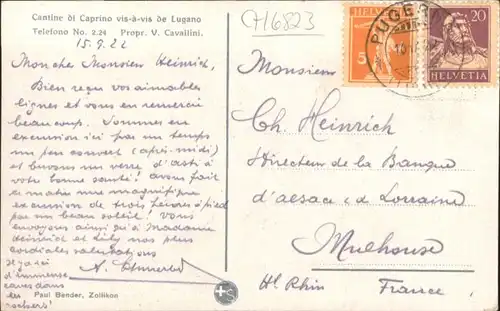 Cantine di Caprino vis-à-vis de Lugano
Telefono No. 2.24 Propr. V. Cavallini.
15.9.22
Mon cher Monsieur Heinrich,
Bien reçu vos aimables
lignes et vous en remercie
beaucoup. Sommes en
excursion ici par un temps
un peu couvert (après-midi)
et buvons un verre d'asti à
votre bonne santé! Avons fait
ce matin une magnifique
excursion de trois heures à pied
par un beau soleil! Vous
envoyons ainsi qu'à Madame
Heinrich et Lily nos plus
cordiales salutations
Il y a ici
d'immenses
caves dans
les
rochers!
Paul Bender, Zollikon
CH 6823
PUGE
HELVETIA
5
20
HELVETIA
Monsieur
Ch. Heinrich
Directeur de la Banque
d'alsace & de Lorraine
Mulhouse
Ht. Rhin
France